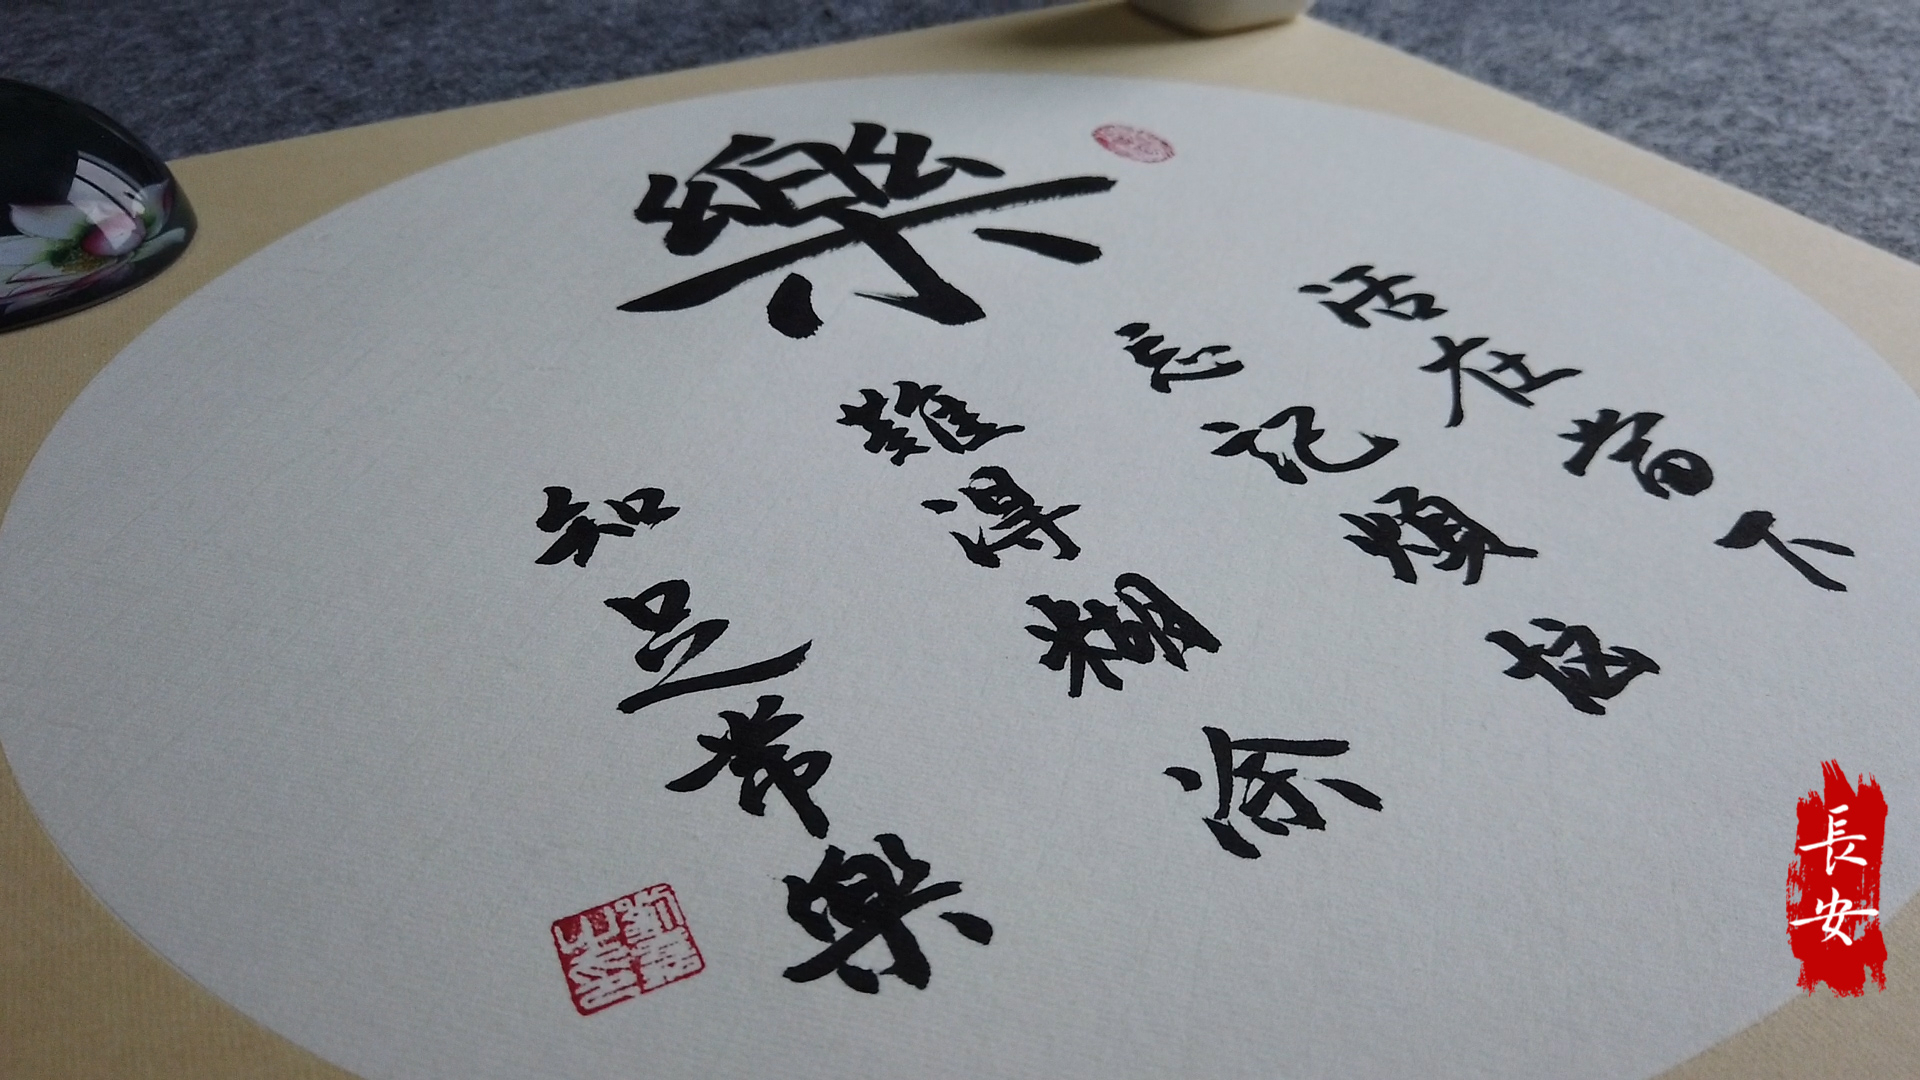 樂
活在當下
忘記煩惱
難得糊涂
知足常樂
長安